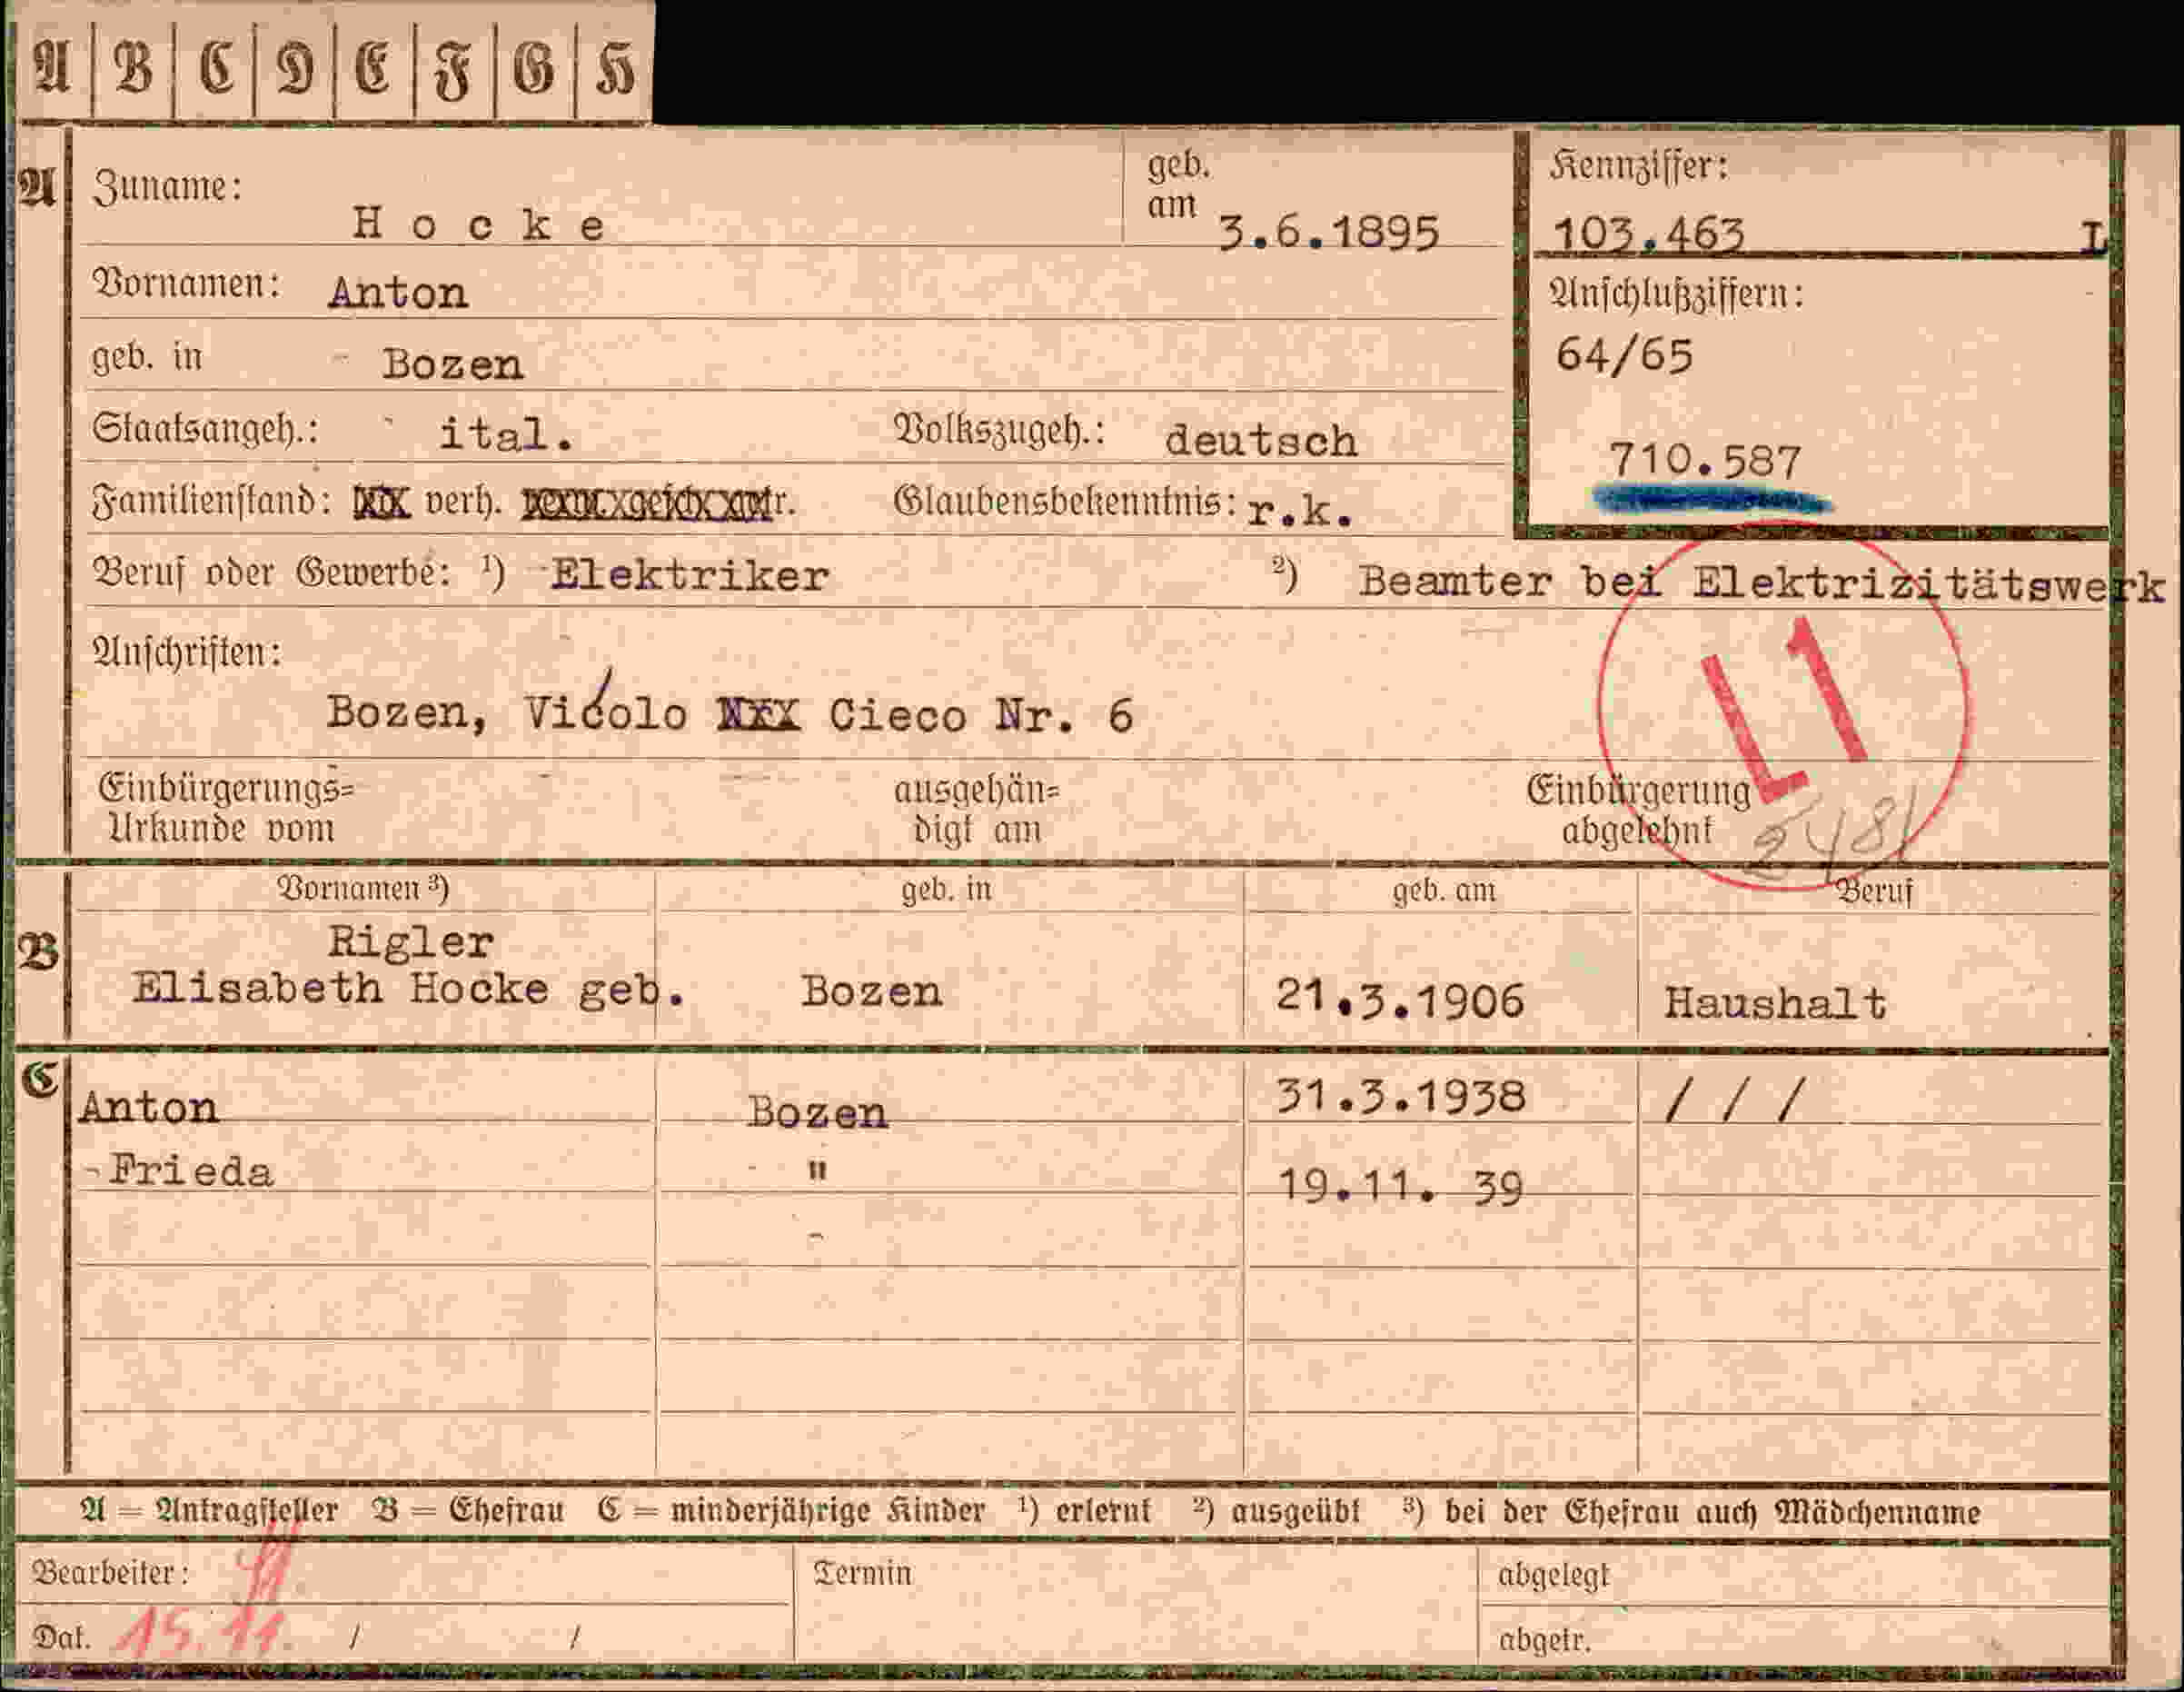 A B C D E F G H
A Zuname: Hocke geb. am 3.6.1895 Kennziffer: 103.463 I
Vornamen: Anton Anschlußziffern:
geb. in Bozen 64/65
Staatsangeh.: ital. Volkszugeh.: deutsch 710.587
Familienstand: verh. Glaubensbekenntnis: r.k.
Beruf oder Gewerbe: ¹) Elektriker ²) Beamter bei Elektrizitätswerk
Anschriften: L1
Bozen, Vicolo Cieco Nr. 6
Einbürgerungs= ausgehän= Einbürgerung
Urkunde vom digt am abgelehnt 2481
Vornamen ³) geb. in geb. am Beruf
B Rigler
Elisabeth Hocke geb. Bozen 21.3.1906 Haushalt
C Anton Bozen 31.3.1938 / / /
Frieda " 19.11. 39
A = Antragsteller B = Ehefrau C = minderjährige Kinder ¹) erlernt ²) ausgeübt ³) bei der Ehefrau auch Mädchenname
Bearbeiter: Termin abgelegt
Dat. 15.11. / / abgetr.